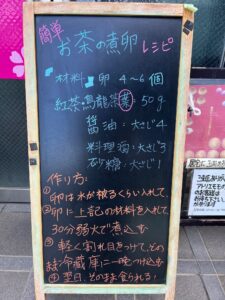 簡単
お茶の煮卵
レシピ
材料:卵 4〜6個
紅茶・烏龍茶葉:50g
醤油:大さじ4
料理酒:大さじ3
砂糖:大さじ1
作り方:
①卵は水が被るくらい入れて、
②卵に上記の材料を入れて
30分弱火で煮込む
③軽く割れ目をつけて、その
まま冷蔵庫に一晩つけ込む
④翌日、そのまま食べられる!